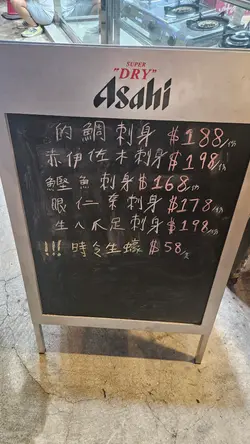 SUPER
"DRY"
Asahi
的鯛刺身 $188/份
赤伊佐木刺身 $198/份
鰹魚刺身 $168/份
眼仁奈刺身 $178/份
生八爪足刺身 $198/份
!!! 時令生蠔 $58/隻